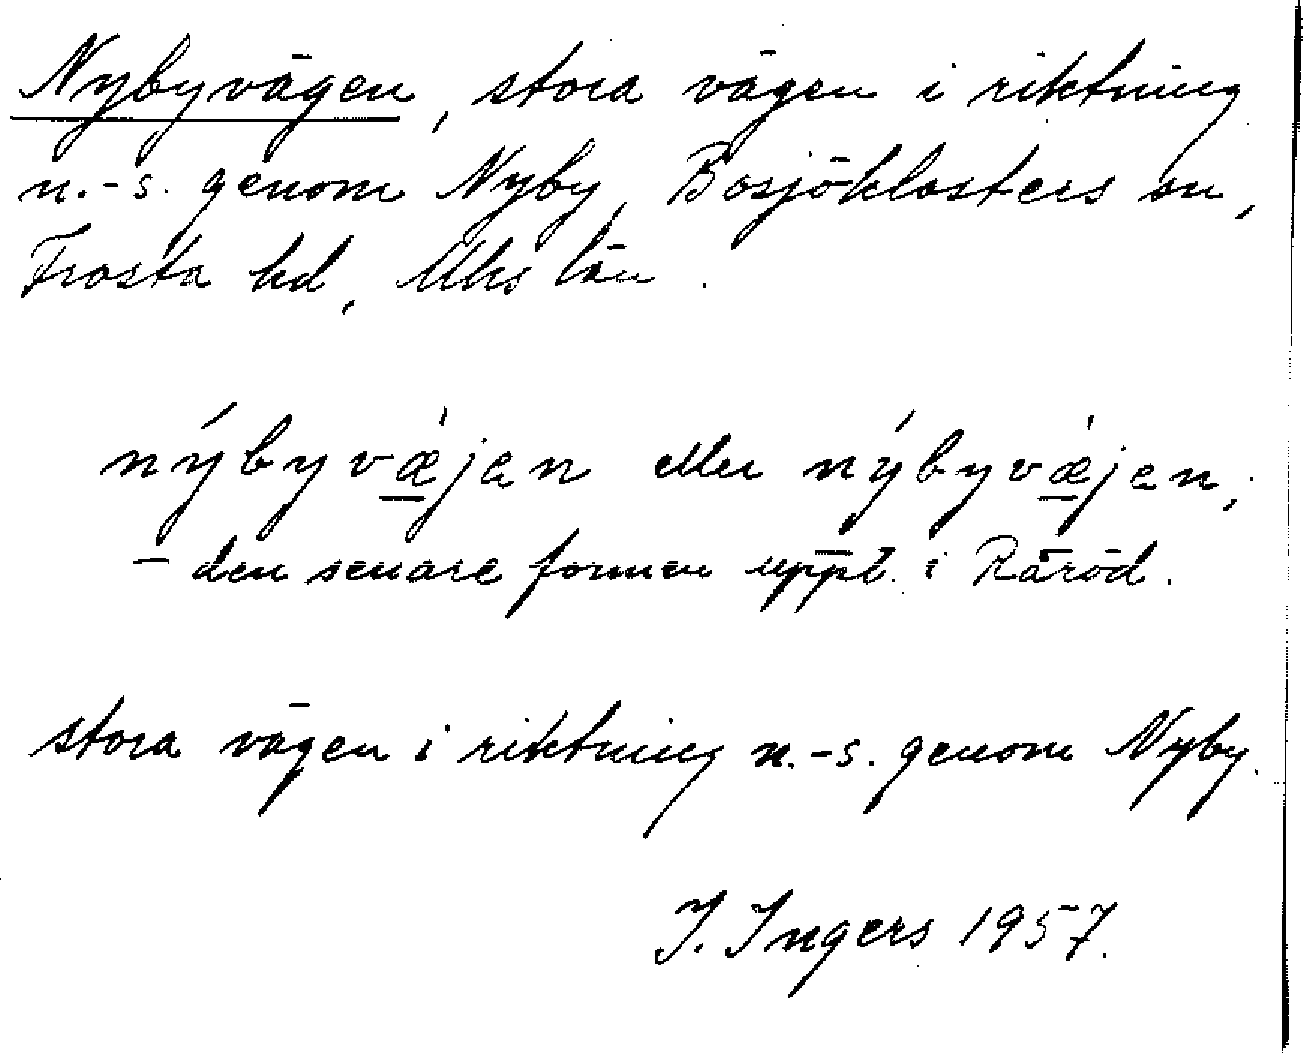 Nybyvägen, stora vägen i riktning
n.-s. genom Nyby, Bosjöklosters sn,
Frosta hd, Mhs län.
nýbyvæ̱̀jen eller nýbyvæ̱̀jen,
– den senare formen uppt. i Råröd.
stora vägen i riktning n.-s. genom Nyby.
I. Ingers 1957.